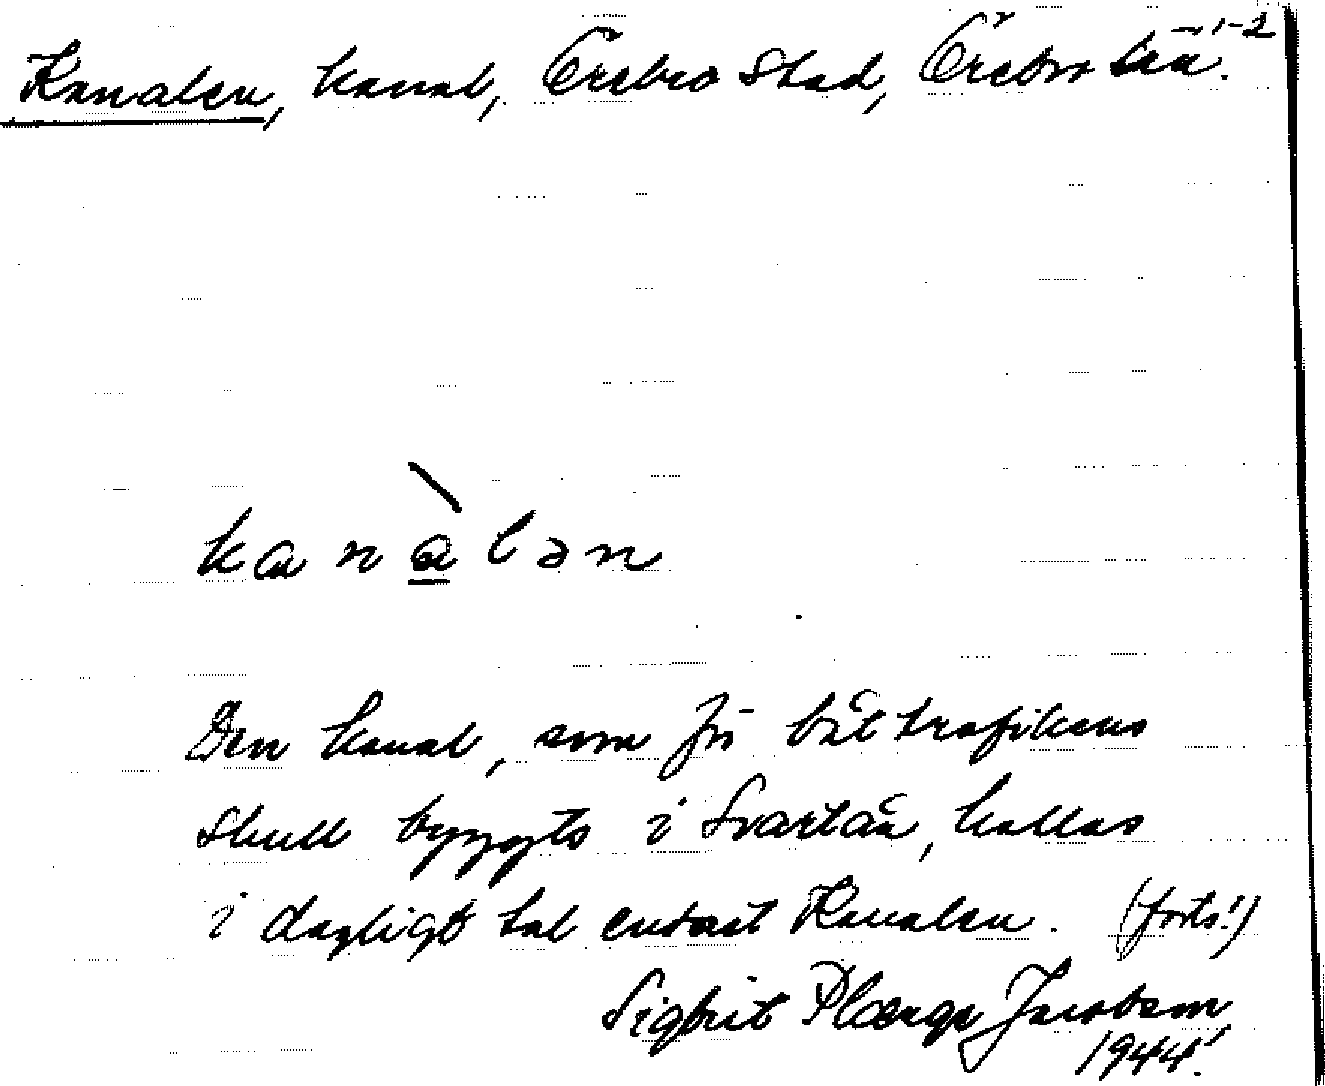 Kanalen, kanal, Örebro stad, Örebro län. 1-2
kanàlən
Den kanal, som för båttrafikens
skull byggts i Svartån, kallas
i dagligt tal endast Kanalen. (forts!)
Sigbrit Plænge Jacobson
1944.